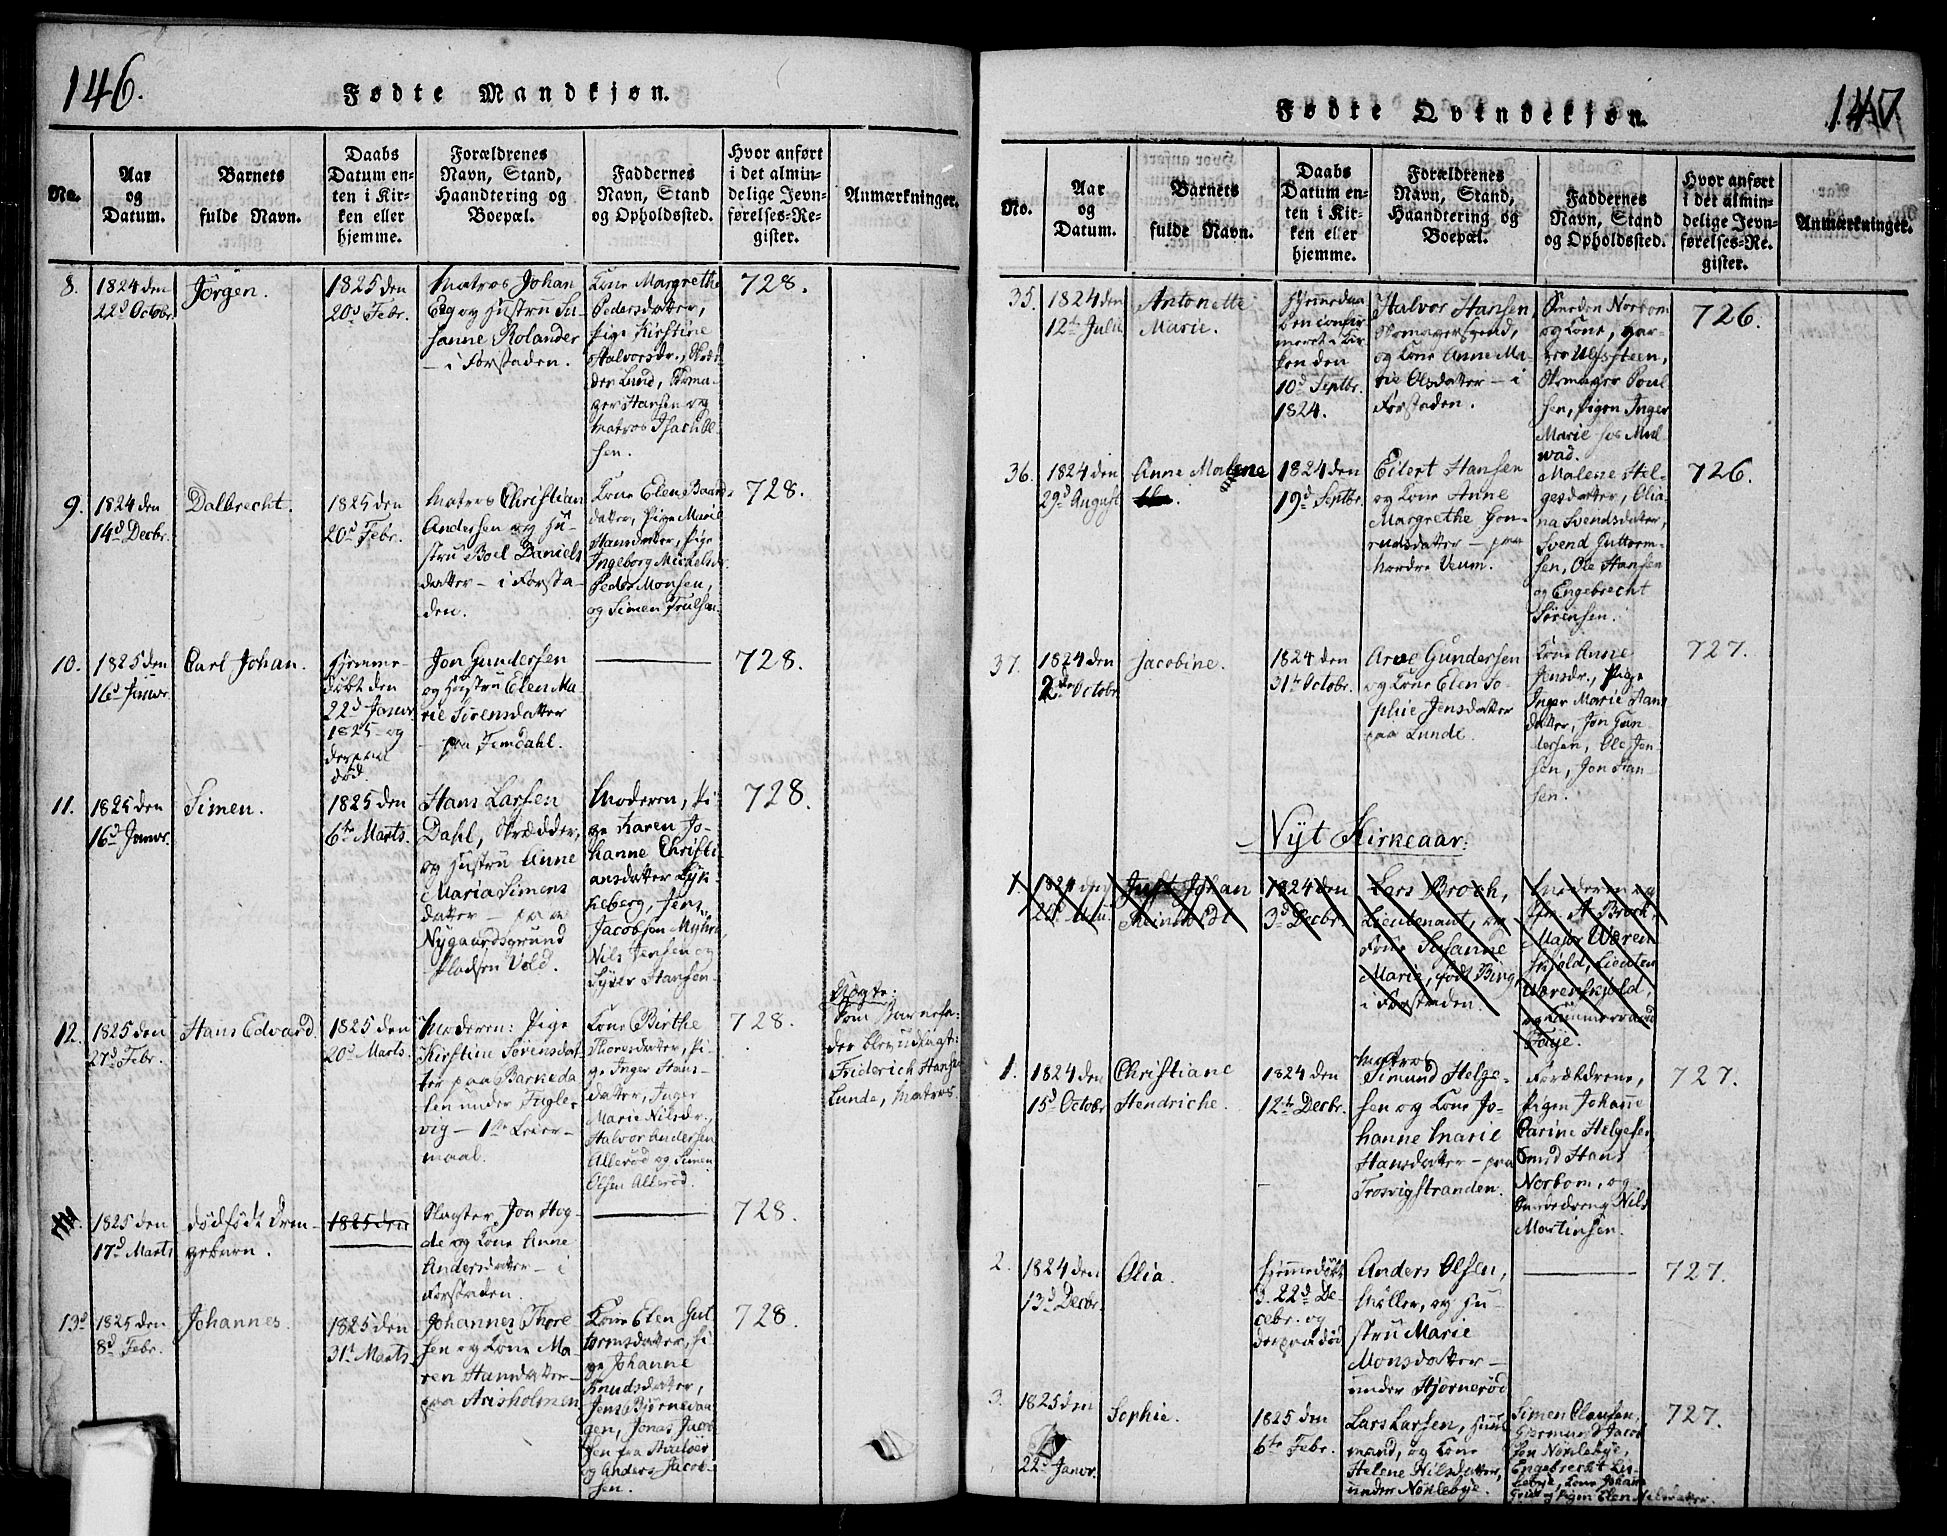 146.
Fødte Mandkjøn.
No.
Aar
og
Datum.
Barnets
fulde Navn.
Daabs
Datum en-
ten i Kir-
ken eller
hjemme.
Forældrenes
Navn, Stand,
Haandtering og
Boepæl.
Faddernes
Navn, Stand
og Opholdssted.
Hvor anført
i det almin-
delige Jevn-
førelses-Re-
gister.
Anmærkninger.
8.
1824 den
22d Octobr
Jørgen.
1825 den
20d Febr.
Matros Johan
Eeg og Hustru Su-
sanne Rolander
– i Forstaden.
Kone Margrethe
Pedersdatter,
Pige Kirstine
Halvorsdr.,
den Lund, Skoma-
ger Hansen og
Matros Isach Ol-
sen.
728.
9.
1824 den
14d Decbr.
Dalbrecht.
1825 den
20d Febr.
Matros Christian
Andersen og Hu-
stru Boel Daniels
datter – i Forsta-
den.
Kone Elen Baards
datter, Pige Marie
Hansdatter, Pige
Ingeborg Michelsdr.
Peder Monsen,
og Simen Trulsen.
728.
10.
1825 den
16d Januar.
Carl Johan.
Hjemme-
døbt den
22d Januar
1825 – og
derpaa
død.
Jon Gundersen
og Hustru Elen Ma-
rie Sørensdatter
– paa Femdahl.
728.
11.
1825 den
16d Januar.
Simen.
1825 den
6te Marts.
Hans Larsen
Dahl, Skrædder,
og Hustru Anne
Maria Simens
datter – paa
Nygaardsgrund
Pladsen Vold.
Moderen, Pi-
ge Karen Jo-
hanne Christi-
ansdatter Lyk-
keberg, Jens
Jacobsen Myhre,
Nils Jensen og
Syver Hansen.
728.
12.
1825 den
27d Febr.
Hans Edvard.
1825 den
20d Marts.
Moderen: Pige
Kirstine Sørensdat-
ter paa Barkeda-
len under Fugle-
vig – 1te Leier-
maal.
Kone Birthe
Thoresdatter, Pi-
ge Inger Hans-
datter, Inger
Marie Nilsdr.,
Halvor Andersen
Allerød og Simen
Olsen Allerød.
728.
Uægte.
Som Barnefa-
der blev udlagt:
Friderich Hansen
Lunde, Matros.
1825 den
17d Marts
dødfødt Dren-
gebarn.
1825 den
Slagter Jon Hog-
de og Kone Anne
Andersdatter – i
Forstaden.
728.
13d
1825 den
8d Febr.
Johannes.
1825 den
31t Marts.
Johannes Thore
sen og Kone Ma
ren Hansdatter –
paa Arisholmen
Kone Elen Gut
tormsdatter, Pi
ge Johanne
Knudsdatter,
Jens Bjørnedaa
gen, Jonas Jacob
sen fra Struløer
og Anders Jacob-
sen.
728.
147
Fødte Qvindekjøn.
No.
Aar
og
Datum.
Barnets
fulde Navn.
Daabs
Datum en-
ten i Kir-
ken eller
hjemme.
Forældrenes
Navn, Stand,
Haandtering og
Boepæl.
Faddernes
Navn, Stand
og Opholdssted.
Hvor anført
i det almin-
delige Jevn-
førelses-Re-
gister.
Anmærkninger.
35.
1824 den
12te Julii
Antonette
Marie.
Hjemmedaa-
ben confir-
meret i Kir-
ken den
10d Septbr.
1824.
Halvor Hansen
Skomagersvend,
og Kone Anne Ma-
rie Olsdatter – i
Forstaden.
Smeden Norbom
og Kone, Gar-
ver Ulfsteen,
Skomager Poul-
sen, Pigen Inger
Marie hos Mul-
wad.
726.
36.
1824 den
29d August
Anne Malene
.
1824 den
19d Septbr.
Eilert Hansen
og Kone Anne
Margrethe Gon-
rudsdatter – paa
Nordre Veum.
Malene Hel-
gesdatter, Olia-
na Svendsdatter,
Svend Guttorm-
sen, Ole Hansen
og Engebrecht
Sørensen.
726.
37.
1824 den
2den Octobr.
Jacobine.
1824 den
31te Octobr.
Arve Gundersen
og Kone Elen So-
phie Jensdatter
paa Lunde.
Kone Anne
Jensdr., Pige
Inger Marie Hans
datter, Jon Gun-
dersen, Ole Jen-
sen, Jon Han-
sen.
727.
Nyt Kirkeaar.
1.
1824 den
Just Johan
Meinhardt
1824 den
3d Decbr.
Lars Broch,
Lieutenant, og
Frue Susanne
Marie, født Bing
i Forstaden.
Moderen og
Hr. A. Broch,
Major Wæren
skjold, Lieuten.
Wærenskjold,
og Kammerraad
Faye.
1.
1824 den
15d Octobr
Christiane
Hendriche.
1824 den
12te Decbr.
Matros
Simund Helge-
sen og Kone Jo-
hanne Marie
Hansdatter – paa
Trosvigstranden.
Forældrene,
Pigen Johanne
Carine Helgesen
Smed Hans
Norbom, og
Smededreng Nils
Martinsen.
727.
2.
1824 den
13d Decbr.
Olia.
Hjemmedøbt
d. 22d De-
cebr. og
derpaa død
Anders Olsen,
Møller, og Hu-
stru Marie
Monsdatter –
under Hjørnerød
727.
3.
1825 den
22d Janvr.
Sophie.
1825 den
6te Febr.
Lars Larsen, Huus
mand, og Kone
Helene Nilsdatter,
under Nørlebye.
Simen Clausen,
Giermund Jacob
sen Nørlebye,
Engebrecht Lis-
lebye, Kone Johanne
og Pigen Elen Nilsdatter.
727.